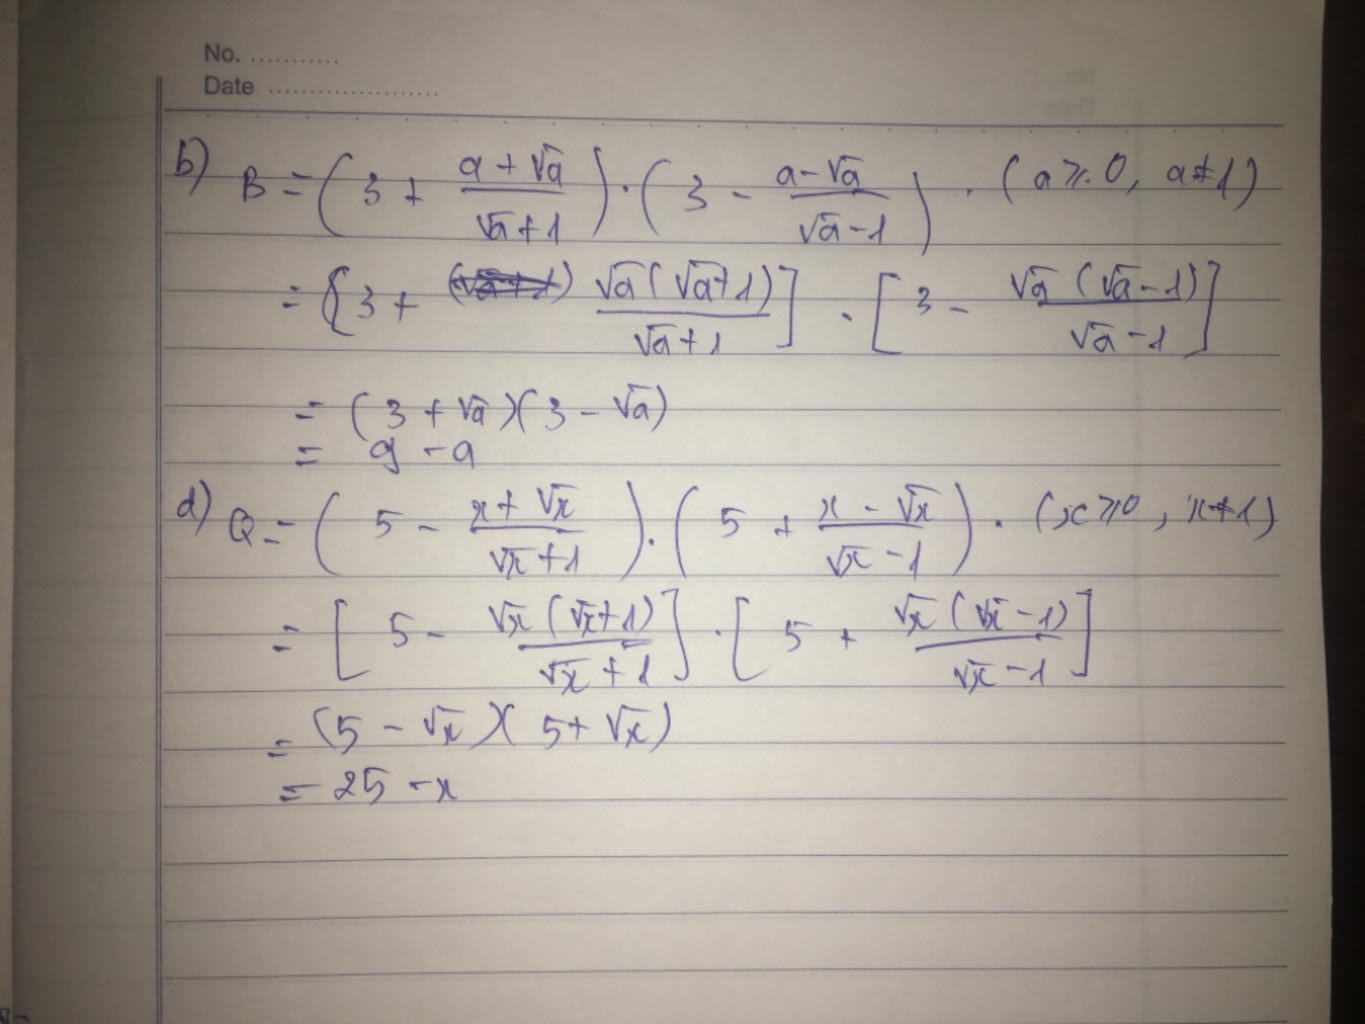 No. ...........
Date .....................
b) B = ( 3 + (a + √a)/(√a + 1) ) . ( 3 - (a - √a)/(√a - 1) ) . (a ⩾ 0, a ≠ 1)
= [ 3 + √a(√a + 1)/(√a + 1) ] . [ 3 - √a(√a - 1)/(√a - 1) ]
= (3 + √a)(3 - √a)
= 9 - a
d) Q = ( 5 - (x + √x)/(√x + 1) ) . ( 5 + (x - √x)/(√x - 1) ) . (x ⩾ 0, x ≠ 1)
= [ 5 - √x(√x + 1)/(√x + 1) ] . [ 5 + √x(√x - 1)/(√x - 1) ]
= (5 - √x)(5 + √x)
= 25 - x